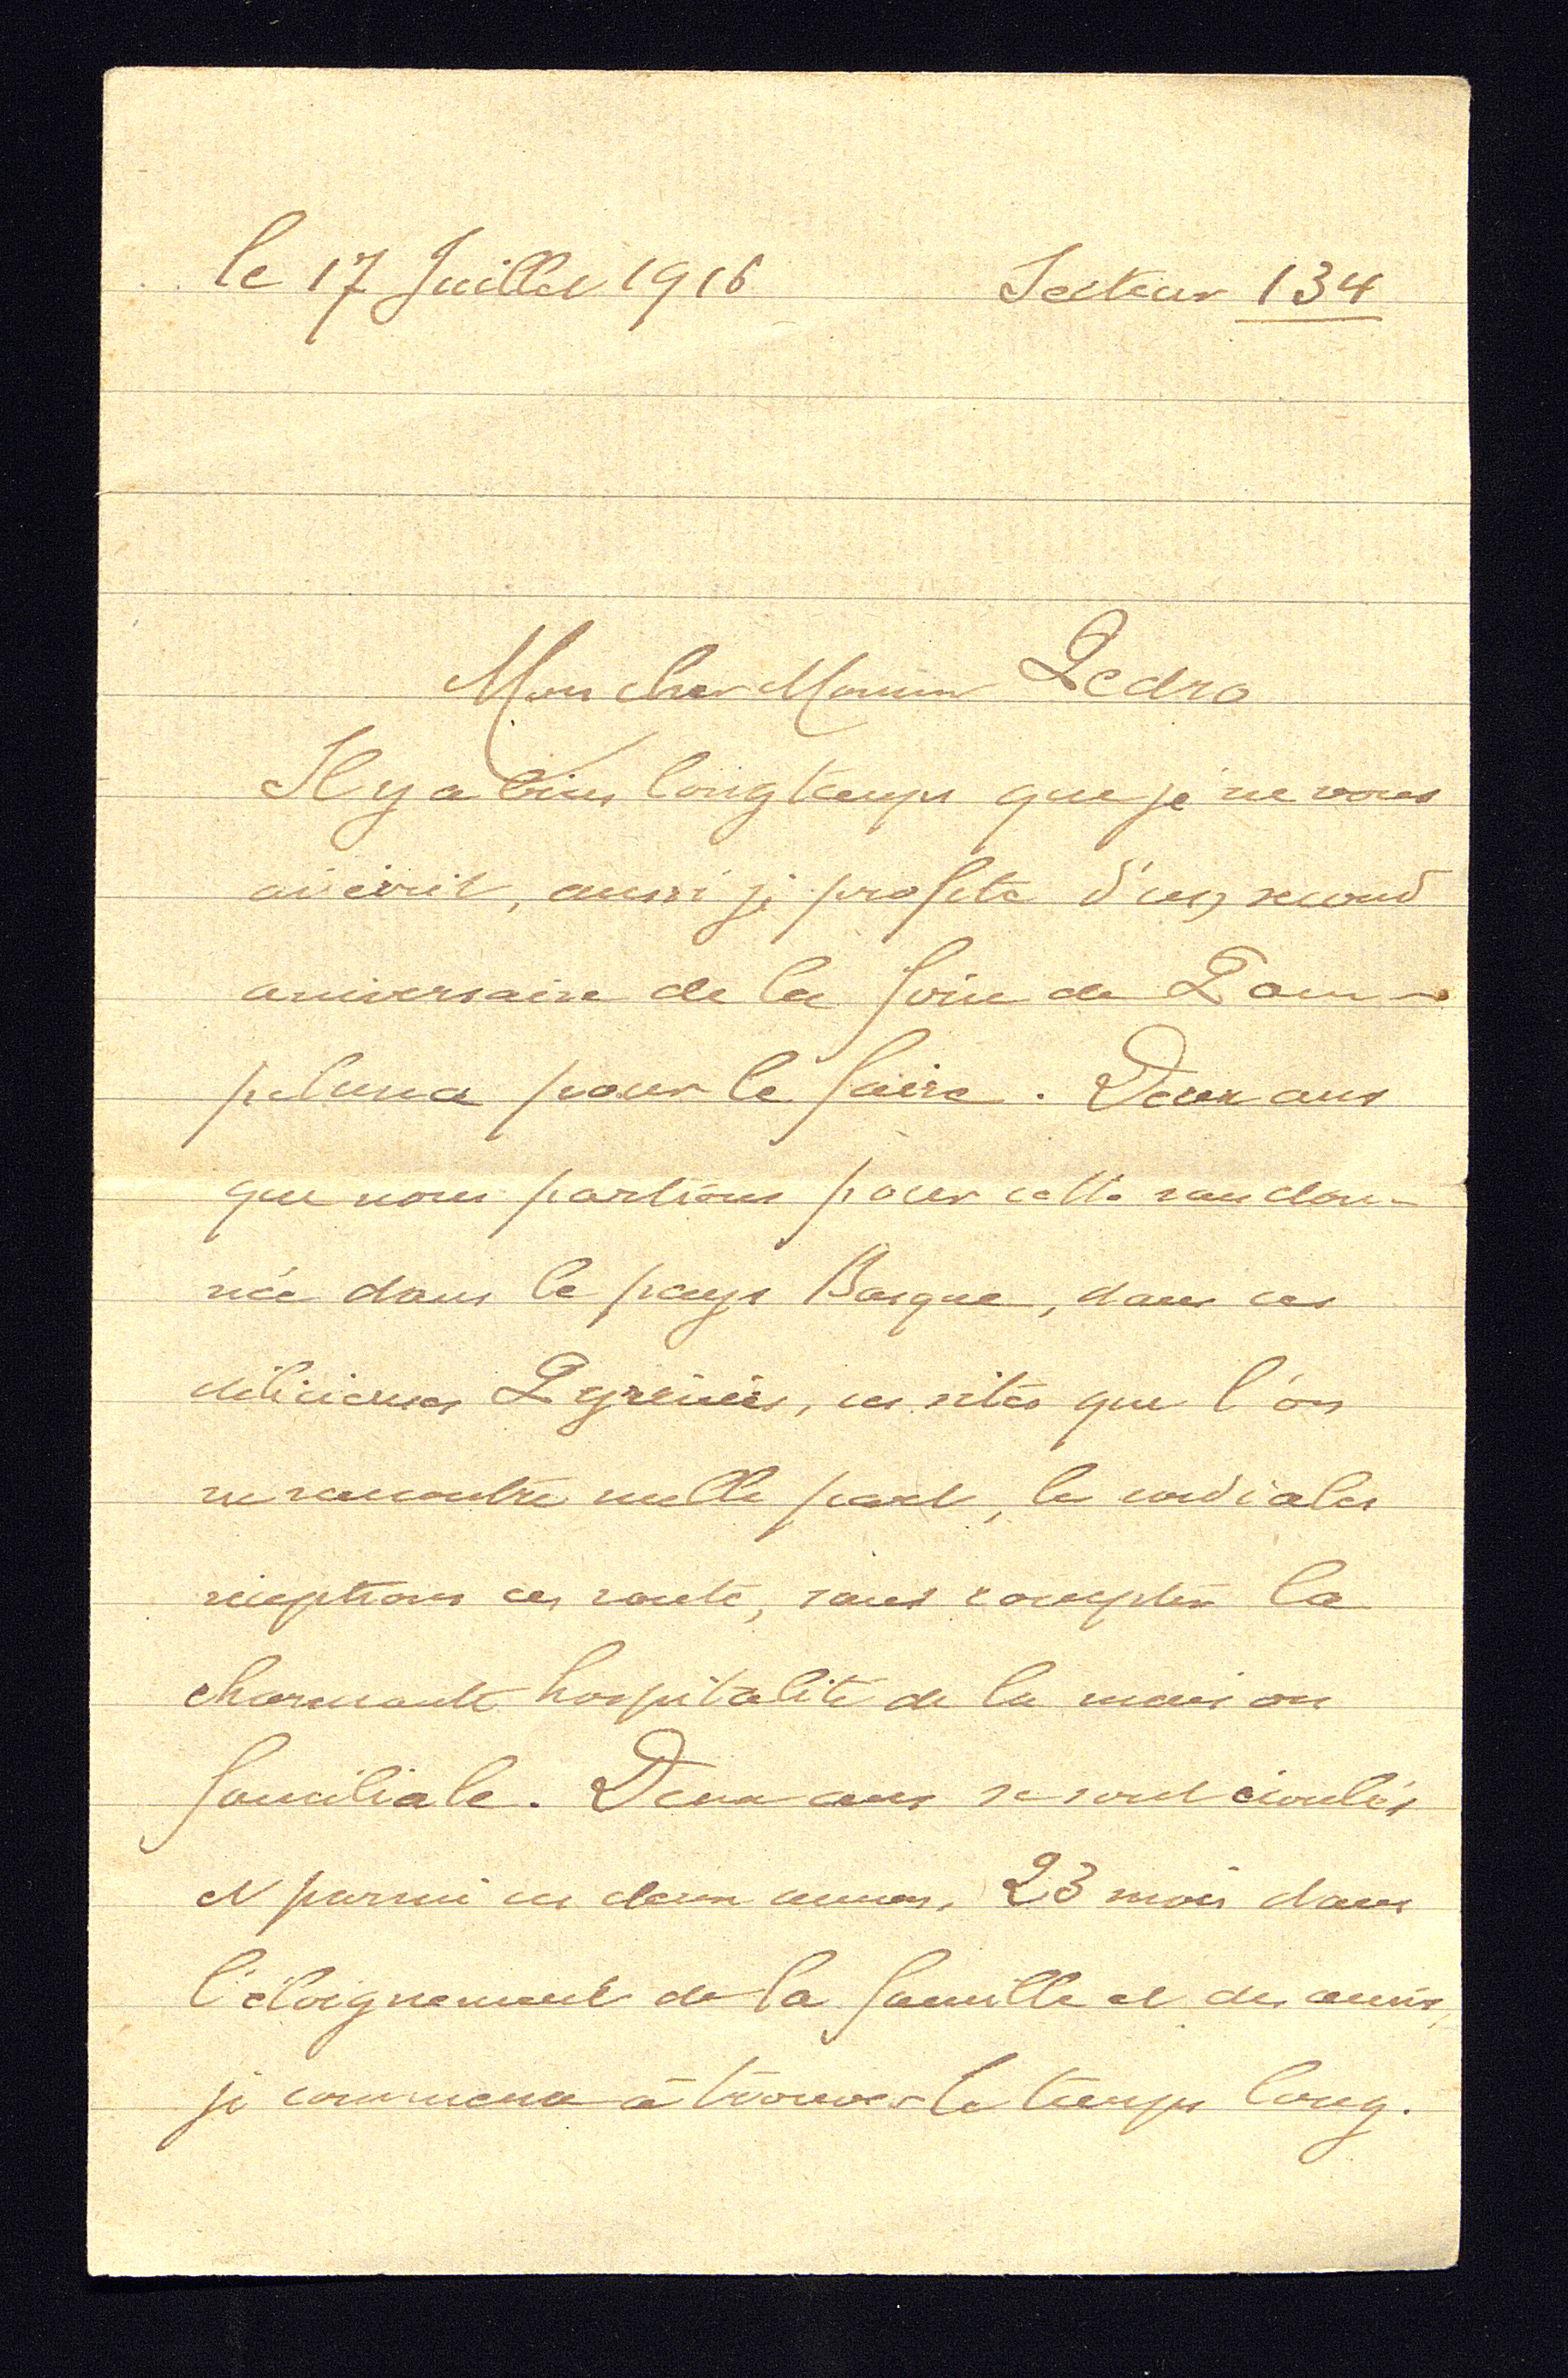 le 17 Juillet 1916 Secteur 134
Mon cher Monsieur Pedro
Il y a bien longtemps que je ne vous
ai écrit, aussi je profite d'un second
aniversaire de la foire de Pam-
peluna pour le faire. Deux ans
que nous partions pour cette randon-
née dans le pays Basque, dans ces
délicieuses Pyrénées, ces sites que l'on
ne rencontre nulle part, les cordiales
réceptions en route, sans compter la
charmante hospitalité de la maison
familiale. Deux ans se sont écoulés
et parmi ces deux années, 23 mois dans
l'éloignement de la famille et des amis,
je commence à trouver le temps long.